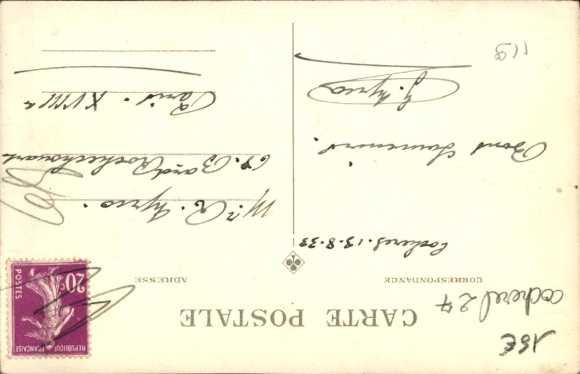 CARTE POSTALE
CORRESPONDANCE
ADRESSE
Cocherel. 15.8.33
Bons Souvenirs.
G. Ayria
Mr. R. Ayria.
67. Bard Rochechouart
Paris. XVIII e
REPUBLIQUE FRANÇAISE
20c
POSTES
cocherel 27
15€